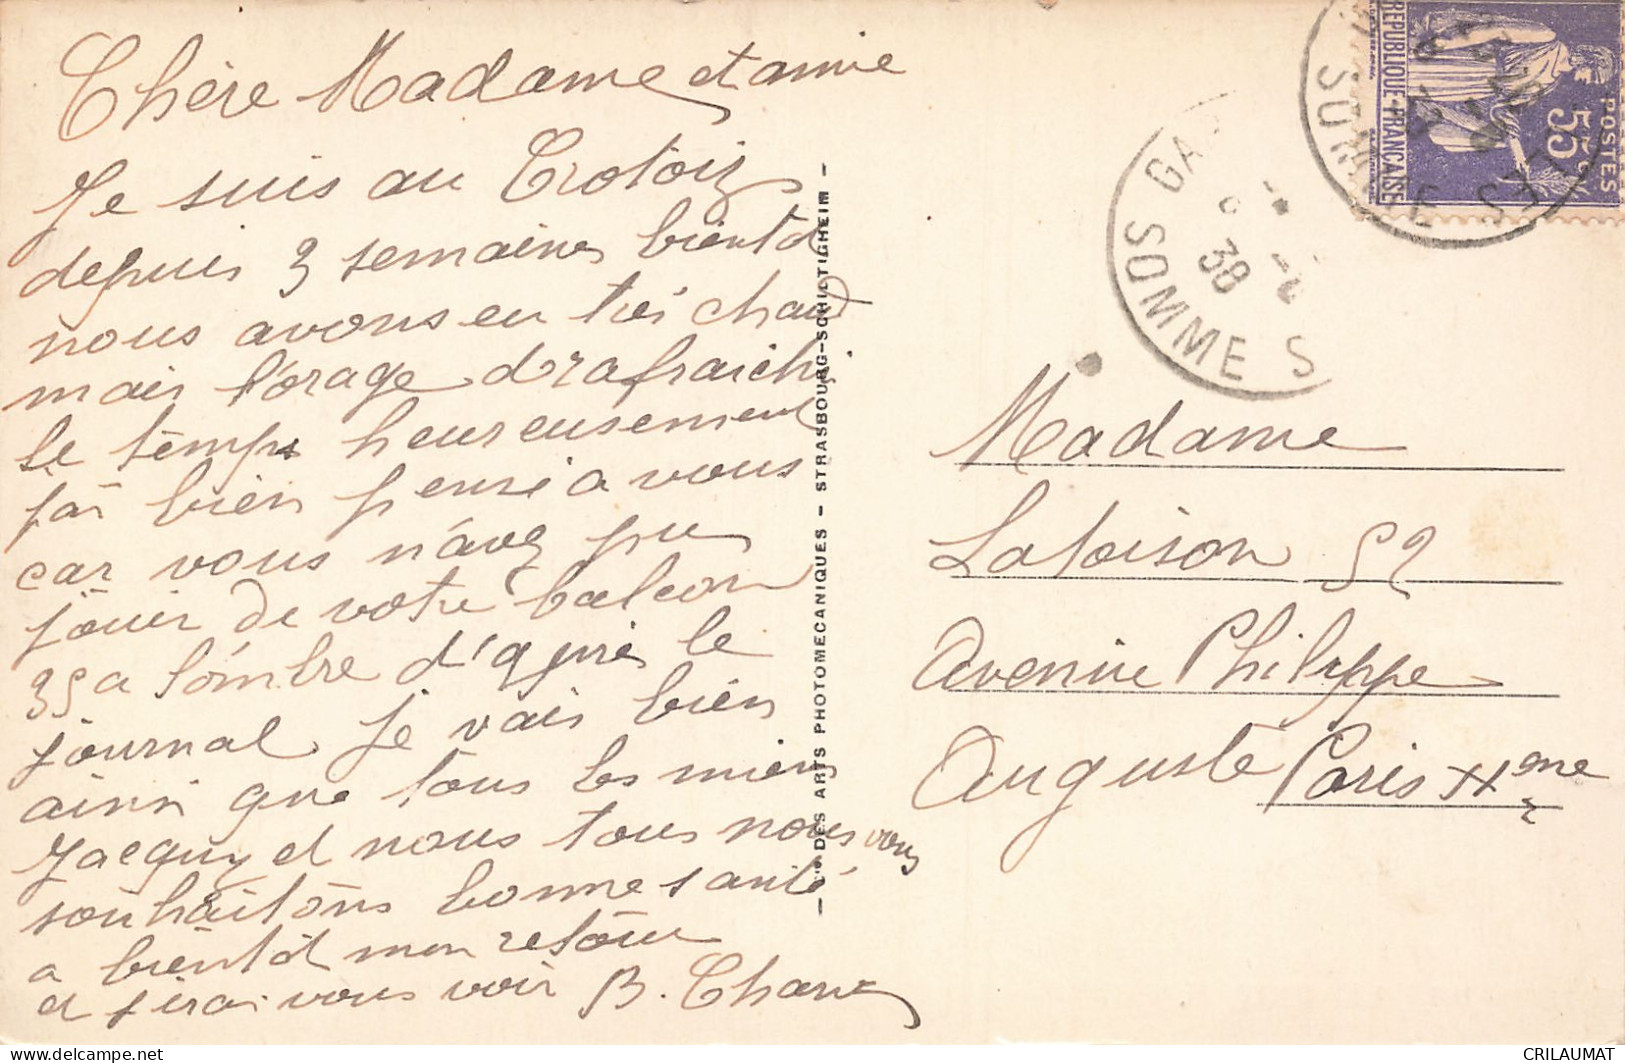 Chère Madame et amie
Je suis au Crotoiz
depuis 3 semaines bientot
nous avons eu trés chaud
mais l'orage à rafraichi
le temps heureusement
j'ai bien pensé a vous
car vous n'avez pu
jouir de votre balcon
35 a l'ombre d'après le
journal je vais bien
ainsi que tous les miens
Jacquy et nous tous nous vous
souhaitons bonne santé
a bientot mon retour
et j'irai vous voir B.
Cie DES ARTS PHOTOMECANIQUES - STRASBOURG-SCHILTIGHEIM -
GA
SOMME S
38
SOMME
REPUBLIQUE-FRANÇAISE
POSTES
55c
Madame
Latoison 52
Avenue Philippe
Auguste Paris XI eme
delcampe.net
CRILAUMAT